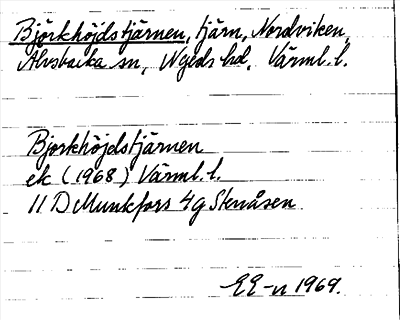 Björkhöjdstjärnen, tjärn, Nordviken,
Alvsbacka sn, Nyeds hd, Värml. l.
Bjorkhöjdstjärnen
ek (1968) Värml. l.
11 D Munkfors 4g Stenåsen
EE-n 1969.